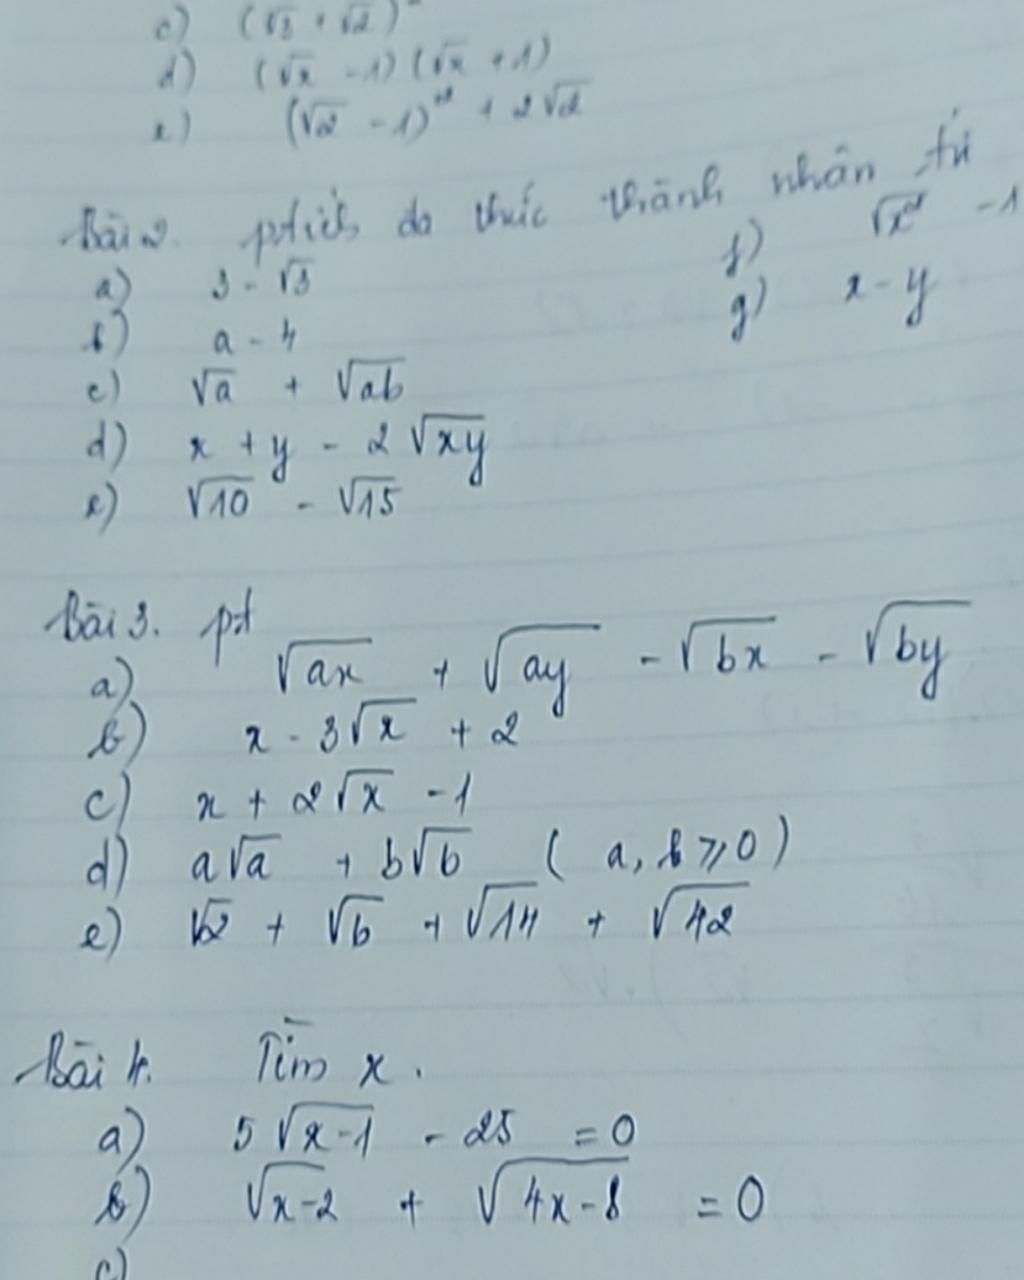 c) (√3 + √2)²
d) (√x - 1) (√x + 1)
e) (√2 - 1)² + 2√2
Bài 2. ptích đa thức thành nhân tử
a) 3 - √3
b) a - 4
c) √a + √ab
d) x + y - 2√xy
e) √10 - √15
f) √x² - 1
g) x - y
Bài 3. pt
a) √ax + √ay - √bx - √by
b) x - 3√x + 2
c) x + 2√x - 1
d) a√a + b√b ( a, b ⩾ 0 )
e) √2 + √6 + √14 + √42
Bài 4. Tìm x.
a) 5√x-1 - 25 = 0
b) √x-2 + √4x-8 = 0
c)